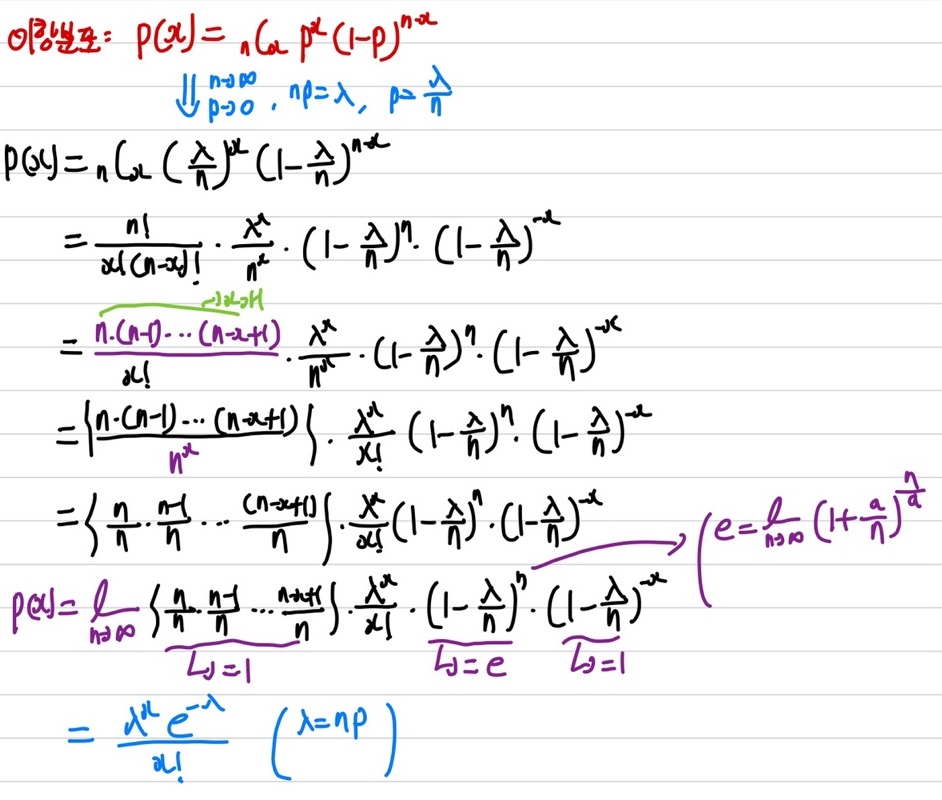 이항분포: P(x) = ₙCₓ pˣ (1-p)ⁿ⁻ˣ
⇓ n→∞ p→0 , np=λ, p=λ/n
P(x) = ₙCₓ (λ/n)ˣ (1-λ/n)ⁿ⁻ˣ
= n!/x!(n-x)! · λˣ/nˣ · (1-λ/n)ⁿ · (1-λ/n)⁻ˣ
= n·(n-1)···(n-x+1)/x! · λˣ/nˣ · (1-λ/n)ⁿ · (1-λ/n)⁻ˣ
= {n·(n-1)···(n-x+1)/nˣ} · λˣ/x! (1-λ/n)ⁿ · (1-λ/n)⁻ˣ
= {n/n · n-1/n ··· (n-x+1)/n} · λˣ/x! (1-λ/n)ⁿ · (1-λ/n)⁻ˣ
(e = l n→∞ (1+a/n)^(n/a)
P(x) = l n→∞ {n/n · n-1/n ··· n-x+1/n} · λˣ/x! · (1-λ/n)ⁿ · (1-λ/n)⁻ˣ
↳=1 ↳=e ↳=1
= λˣe^(-λ)/x! (λ=np)